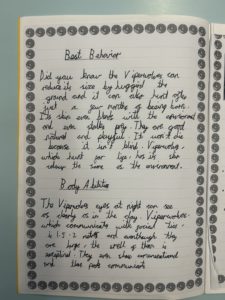 Best Behavior
Did you know the Viperwolves can
reduce its size by hugging the
ground and it can also hunt after
just a four months of being born.
Its skin even blends with the environment
and even stalks prey. They are good
natured and playful. It won't die
because it isn't blind. Viperwolves,
which hunt for life, has its skin
colour the same as the environment.
Body Abilities
The Viperwolves eyes at night can see
as clearly as in the day. Viperwolves
which communicate with
is 1.5-2 metres and
are huge, the of them is
They even show
and communicate